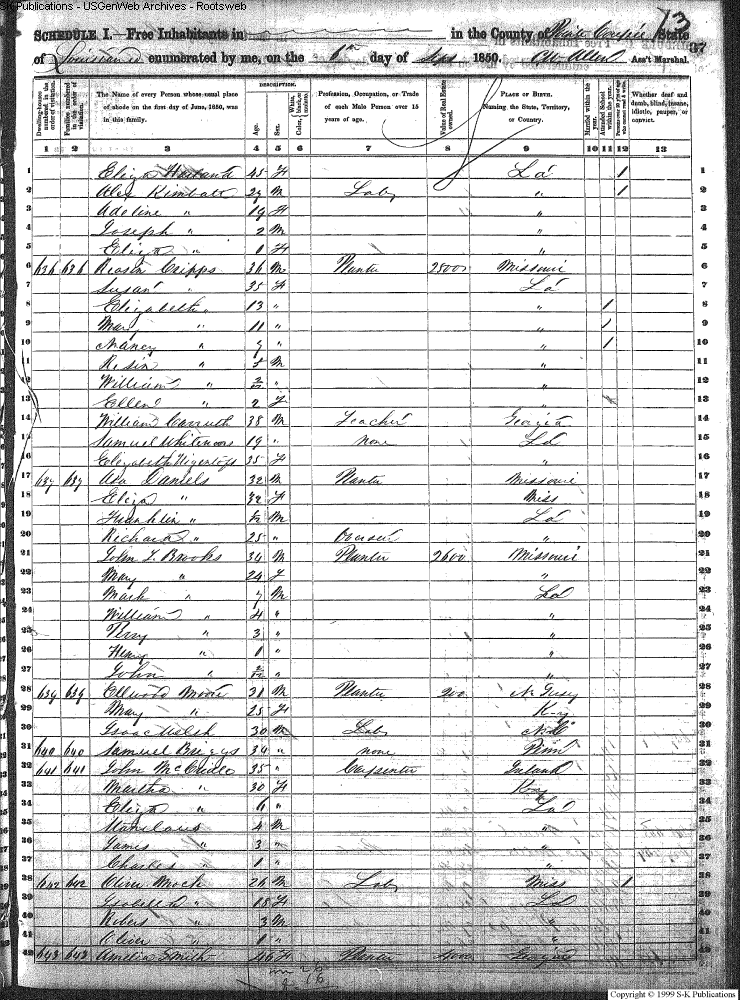 SK-Publications - USGenWeb Archives - Rootsweb
73
SCHEDULE I.—Free Inhabitants in in the County of Pointe Coupee State
37
of Louisiana enumerated by me, on the 6th day of Sept 1850. Ass't Marshal.
Dwelling-houses numbered in the order of visitation.
Families numbered in the order of visitation.
The Name of every Person whose usual place of abode on the first day of June, 1850, was in this family.
DESCRIPTION.
Age.
Sex.
White, black, or mulatto.
Color,
Profession, Occupation, or Trade of each Male Person over 15 years of age.
Value of Real Estate owned.
PLACE OF BIRTH.
Naming the State, Territory, or Country.
Married within the year.
Attended School within the year.
Persons over 20 y'rs of age who cannot read & write.
Whether deaf and dumb, blind, insane, idiotic, pauper, or convict.
1 2 3 4 5 6 7 8 9 10 11 12 13
1 Eliza 45 F La 1 1
2 Alex Kimball 29 M Labr " 1 2
3 Adeline " 19 F " 3
4 Joseph " 2 M " 4
5 Eliza " 1 F " 5
6 636 636 Reason Cripps 36 M Planter 25000 Missouri 6
7 Susan " 35 F La 7
8 Elizabeth " 13 " " 1 8
9 Mary " 11 " " 1 9
10 Nancy " 9 " " 1 10
11 Resin " 5 M " 11
12 William " " " 12
13 Ellen " 2 F " 13
14 William Carruth 38 M Teacher Georgia 14
15 Samuel 19 " none La 15
16 Elizabeth 35 F " 16
17 637 637 Asa Daniels 32 M Planter Missouri 17
18 Eliza " 32 F Miss 18
19 Franklin " M La 19
20 Richard " 25 " " 20
21 John L Brooks 34 M Planter 2600 Missouri 21
22 Mary " 24 F " 22
23 Mark " 7 M La 23
24 William " 4 " " 24
25 Perry " 3 " " 25
26 Henry " 1 " " 26
27 John " 2/12 " " 27
28 639 639 Ellwood Moore 31 M Planter 200 N Jersy 28
29 Mary " 25 F Ky 29
30 Isaac Welsh 30 M Labr 30
31 640 640 Samuel Briggs 34 " none 31
32 641 641 John McCudlo 35 " Carpenter Irland 32
33 Martha " 30 F Ky 33
34 Eliza " 6 " La 34
35 Stanilaus 4 M " 35
36 James " 3 " " 36
37 Charles " 1 " " 37
38 642 642 Oliver Mock 26 M Labr Miss 1 38
39 Isabella " 18 F La 39
40 " 3 M " 40
41 Oliver " 1 " " 41
42 643 643 Amelia Smith 46 F Planter 4000 Georgia 42
Copyright © 1999 S-K Publications